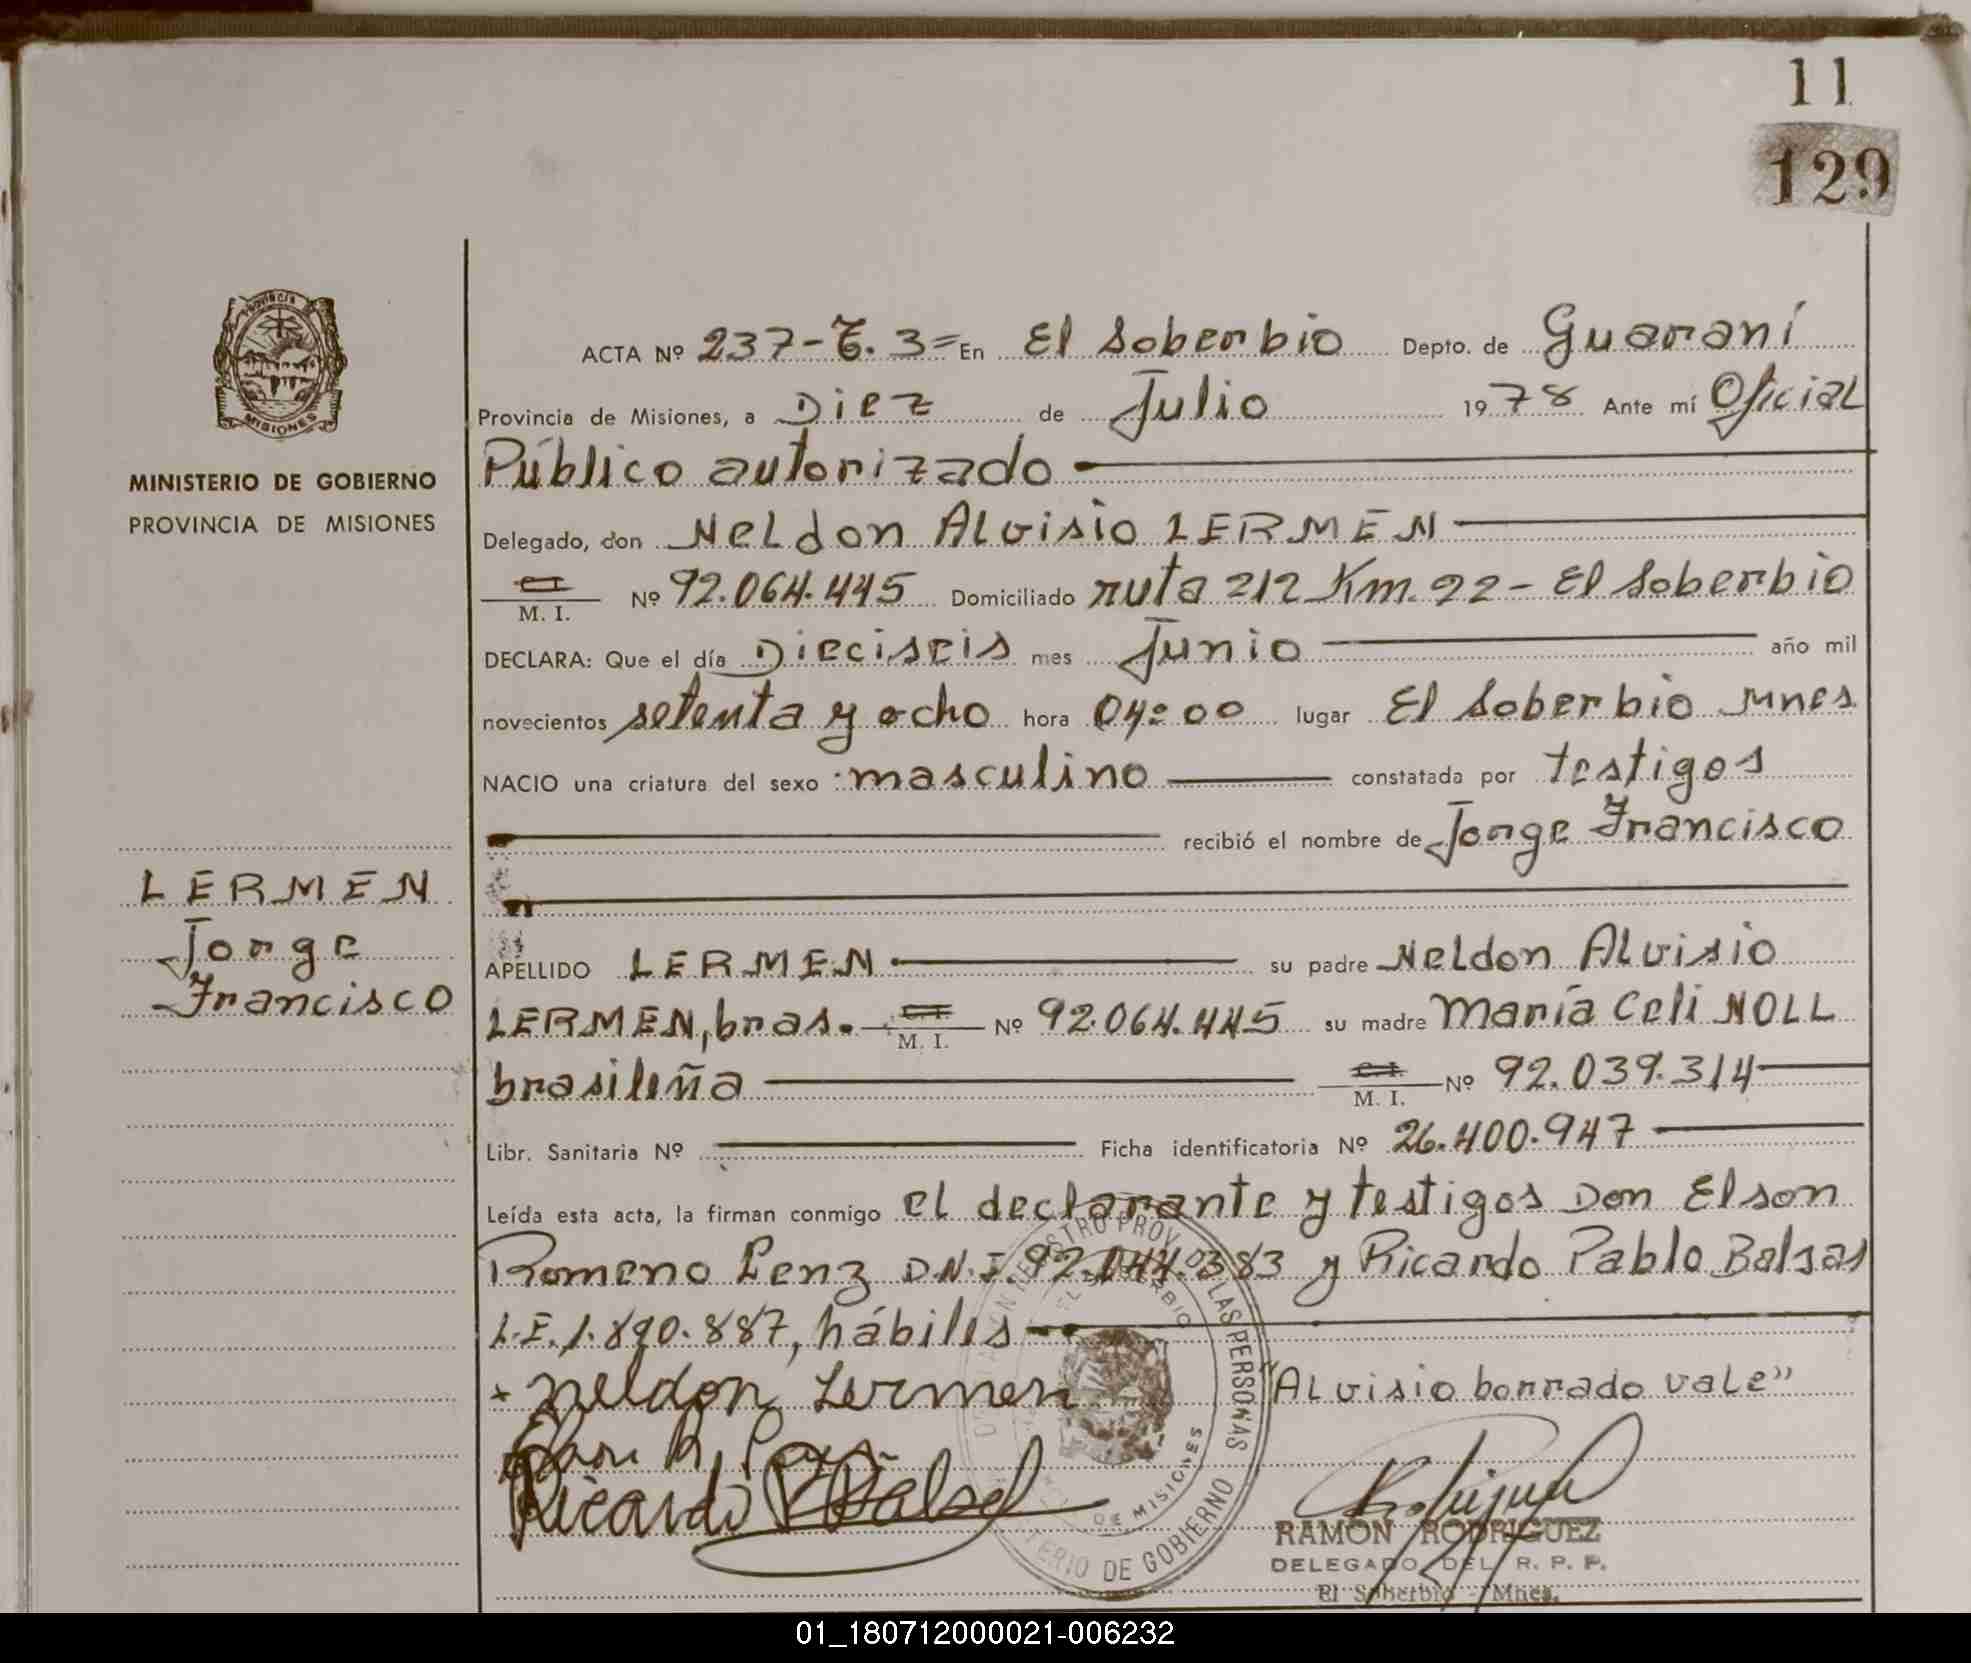 11
129
PROVINCIA
MISIONES
MINISTERIO DE GOBIERNO
PROVINCIA DE MISIONES
ACTA Nº 237-T. 3= En El Soberbio Depto. de Guaraní
Provincia de Misiones, a Diez de Julio 1978 Ante mí Oficial
Público autorizado
Delegado, don Neldon Aluisio LERMEN
C.I. M. I. Nº 92.064.445 Domiciliado ruta 212 Km. 22 - El Soberbio
DECLARA: Que el día Dieciseis mes Junio año mil
novecientos setenta y ocho hora 04:00 lugar El Soberbio Mnes
NACIO una criatura del sexo : masculino constatada por testigos
recibió el nombre de Jorge Francisco
LERMEN
Jorge
Francisco
APELLIDO LERMEN su padre Neldon Aluisio
LERMEN, bras. C.I. M. I. Nº 92.064.445 su madre María Celi NOLL
brasileña C.I. M. I. Nº 92.039.314
Libr. Sanitaria Nº Ficha identificatoria Nº 26.400.947
Leída esta acta, la firman conmigo el declarante y testigos Don Elson
Romeno Lenz D.N.I. 92.044.383 y Ricardo Pablo Balsas
L.E. 1.890.887, hábiles
x Neldon Lermen "Aluisio borrado vale"
Ricardo
REGISTRO PROV. DE LAS PERSONAS
EL SOBERBIO
DE MISIONES
MINISTERIO DE GOBIERNO
RAMON RODRIGUEZ
DELEGADO DEL R. P. P.
El Soberbio - Mnes.
01_180712000021-006232